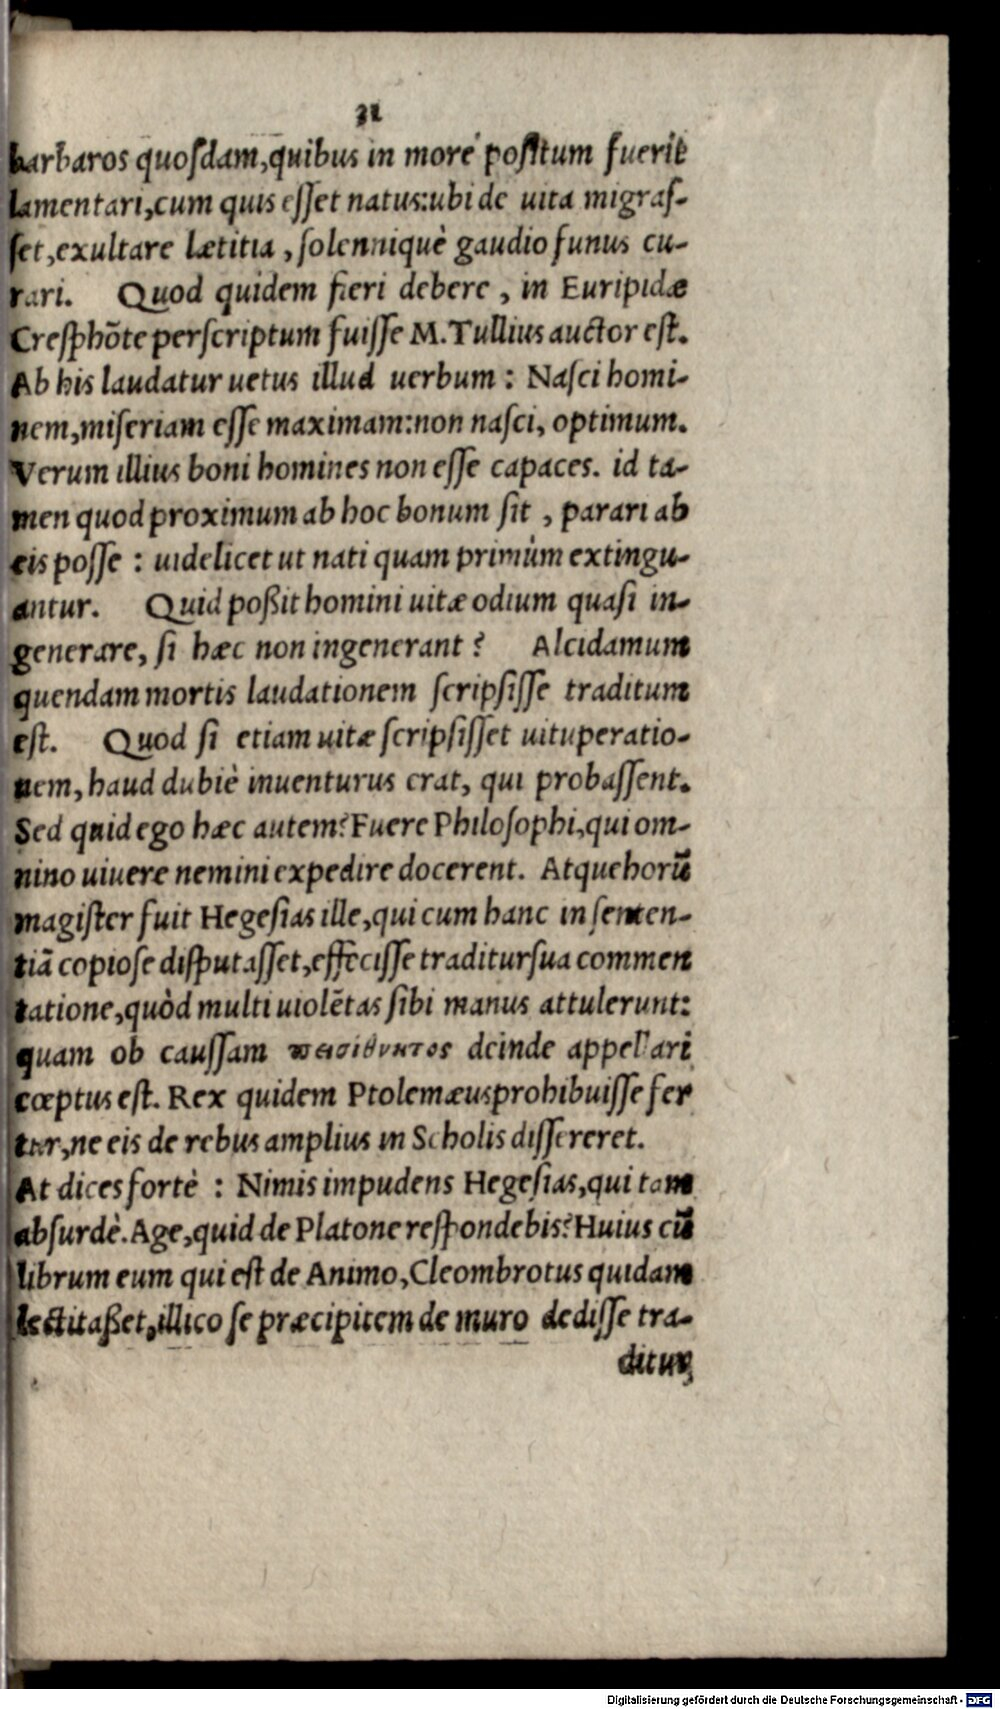 31
barbaros quosdam,quibus in more positum fuerit
lamentari,cum quis esset natus:ubi de uita migraſ-
ſet,exultare lætitia , ſolenniquè gaudio funus cu-
rari. Quod quidem fieri debere , in Euripidæ
Creſphōte perſcriptum fuiſſe M.Tullius auctor eſt.
Ab his laudatur uetus illud uerbum : Naſci homi-
nem,miſeriam eſſe maximam:non naſci, optimum.
Verum illius boni homines non eſſe capaces. id ta-
men quod proximum ab hoc bonum ſit , parari ab
eis poſſe : uidelicet ut nati quam primùm extingu-
antur. Quid poßit homini uitæ odium quaſi in-
generare, ſi hæc non ingenerant ? Alcidamum
quendam mortis laudationem ſcripſiſſe traditum
eſt. Quod ſi etiam uitæ ſcripſiſſet uituperatio-
nem, haud dubiè inuenturus erat, qui probaſſent.
Sed quid ego hæc autem? Fuere Philoſophi,qui om-
nino uiuere nemini expedire docerent. Atque horū
magiſter fuit Hegeſias ille,qui cum hanc in ſenten-
tiā copioſe diſputaſſet,effeciſſe traditur ſua commen
tatione,quòd multi uiolētas ſibi manus attulerunt:
quam ob cauſſam deinde appellari
cœptus eſt. Rex quidem Ptolemæus prohibuiſſe fer
tur,ne eis de rebus amplius in Scholis diſſereret.
At dices fortè : Nimis impudens Hegeſias,qui tam
abſurdè. Age,quid de Platone reſpondebis? Huius cū
librum eum qui eſt de Animo,Cleombrotus quidam
lectitaßet,illico ſe præcipitem de muro dediſſe tra-
ditur,
Digitalisierung gefördert durch die Deutsche Forschungsgemeinschaft - DFG